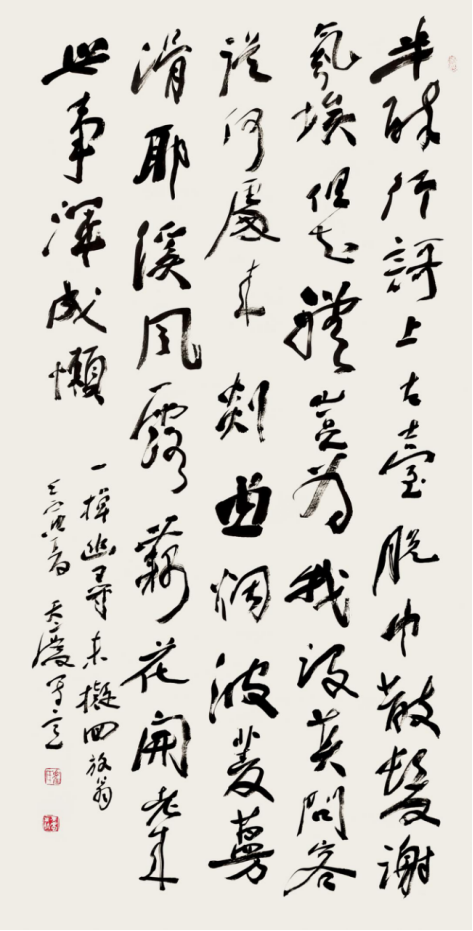 半醉行謌上古臺脱巾散髮謝
氛埃但知禮豈為我設莫問客
從何處來剡曲烟波菱蔓
滑耶溪風露藕花開老來
世事渾成懶
一棹幽尋未擬回放翁